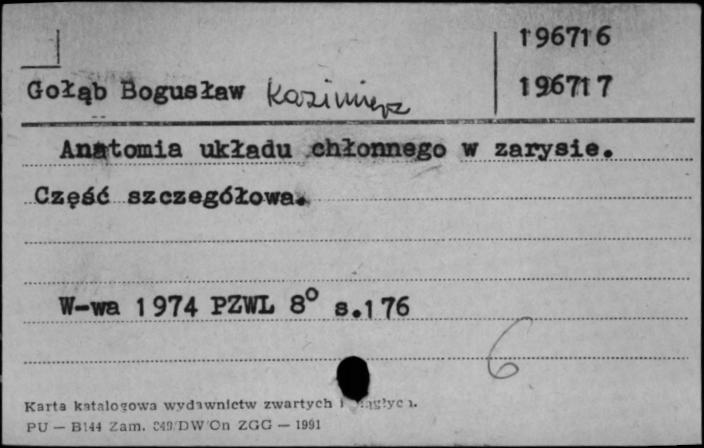 196716
Gołąb Bogusław Kazimierz
196717
Anatomia układu chłonnego w zarysie.
Część szczegółowa.
W-wa 1974 PZWL 8° s.176
6
Karta katalogowa wydawnictw zwartych i ciągłych.
PU — B144 Zam. 349/DW/On ZGG — 1991